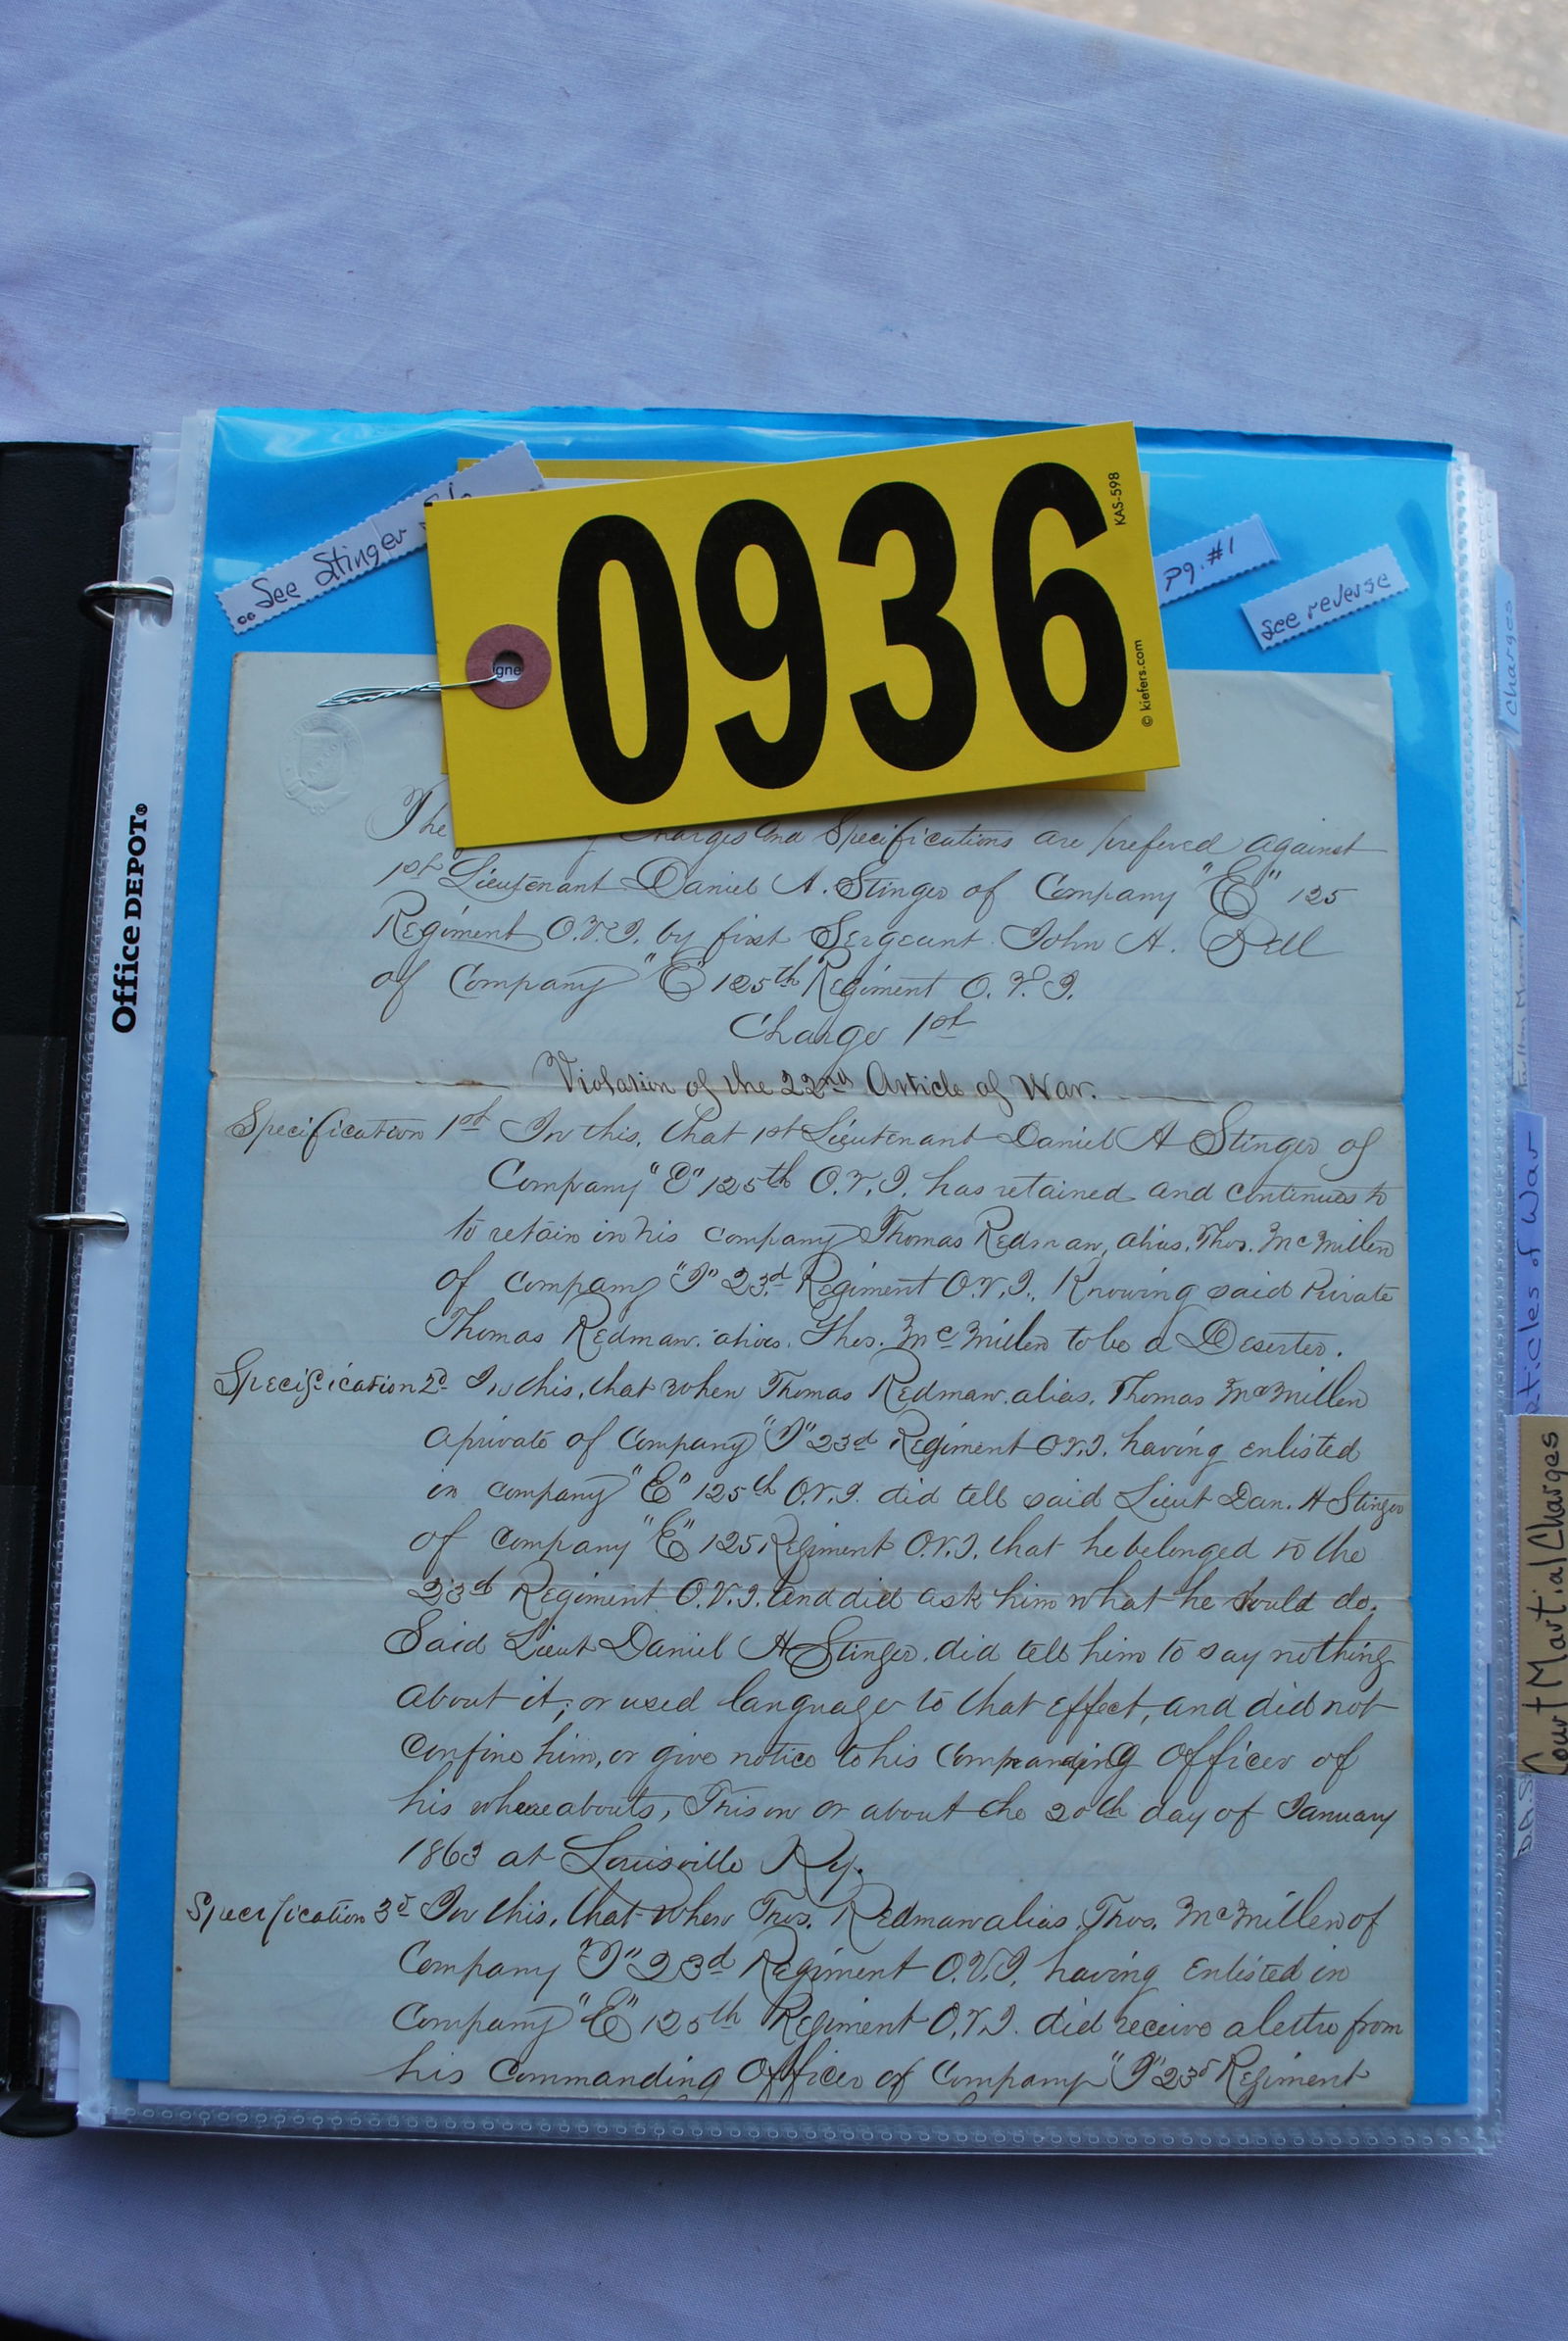 .. See Stinger
0936
KAS-598
© kiefers.com
gne
pg. #1
see reverse
Office DEPOT®
The Charges and Specifications are prefered against
1st Lieutenant Daniel A. Stinger of Company "E" 125
Regiment O.V.I. by first Sergeant John H.
of Company "E" 125th Regiment O.V.I.
Charge 1st
Violation of the 22nd Article of War.
Specification 1st In this, that 1st Lieutenant Daniel A Stinger of
Company "E" 125th O.V.I. has retained and continues to
to retain in his company Thomas Redman, alias, Thos. McMillen
of company "I" 23d Regiment O.V.I., Knowing said Private
Thomas Redman. alias. Thos. McMillen to be a Deserter.
Specification 2d In this, that when Thomas Redman. alias. Thomas McMillen
a private of Company "I" 23d Regiment O.V.I. having enlisted
in company "E" 125th O.V.I. did tell said Lieut Dan. A Stinger
of company "E" 125 Regiment O.V.I. that he belonged to the
23d Regiment O.V.I. and did ask him what he should do.
Said Lieut Daniel A Stinger. did tell him to say nothing
about it; or used language to that effect, and did not
confine him, or give notice to his Commanding Officer of
his whereabouts, This on or about the 20th day of January
1863 at Louisville Ky.
Specification 3d In this, that when Thos. Redman alias. Thos. McMillen of
Company "I" 23d Regiment O.V.I. having Enlisted in
Company "E" 125th Regiment O.V.I. did receive a letter from
his Commanding Officer of Company "I" 23d Regiment
Charges
Articles of War
Court Martial Charges
DAS